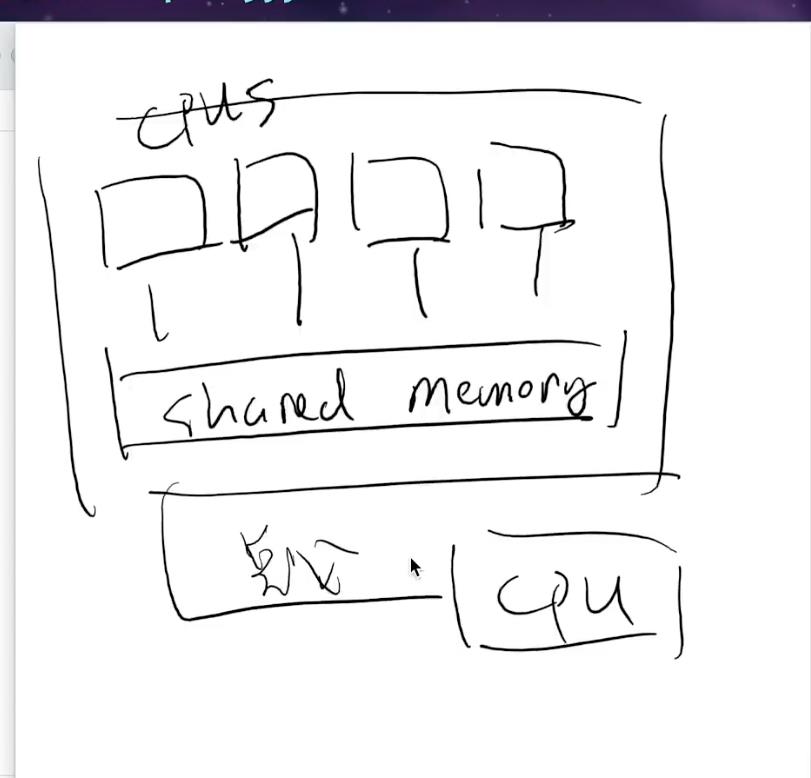 CPUs
shared memory
CPU